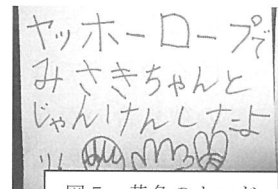 ヤッホーロープで
みさきちゃんと
じゃんけんしたよ